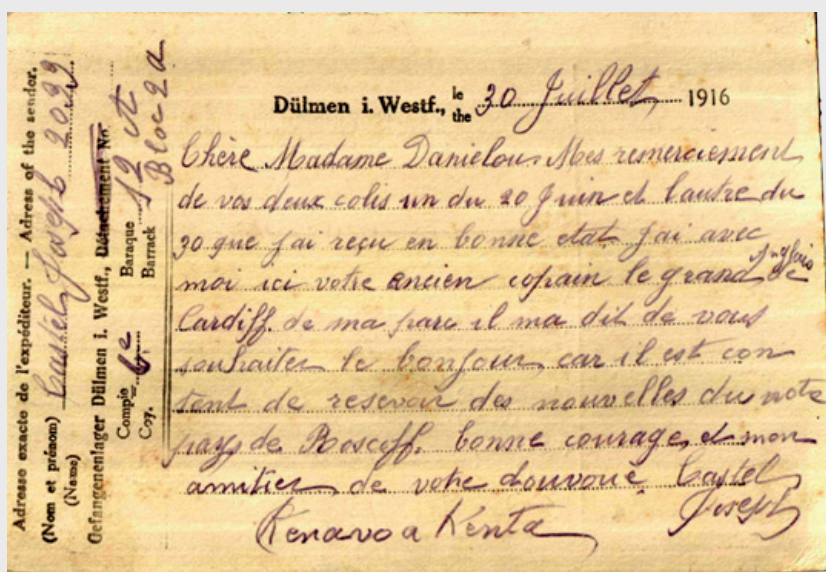 Adresse exacte de l'expéditeur. — Adress of the sender.
(Nom et prénom) Castel Joseph 2022
(Name)
Gefangenenlager Dülmen i. Westf., Détachement No.
Compie 6e Baraque 12 et
Coy. Barrack Bloc 2a
Dülmen i. Westf., le 30 Juillet 1916
the
Chère Madame Danielou. Mes remerciement
de vos deux colis un du 20 Juin et l'autre du
30 que j'ai reçu en bonne etat j'ai avec
moi ici votre ancien copain le grand Anglais de
Cardiff. de ma parc il ma dit de vous
souhaiter le bonjour, car il est con
tent de resevoir des nouvelles du notre
pays de Roscoff. bonne courage, et mon
amitier de votre douvoué Castel
Joseph
Kenavo a Kenta